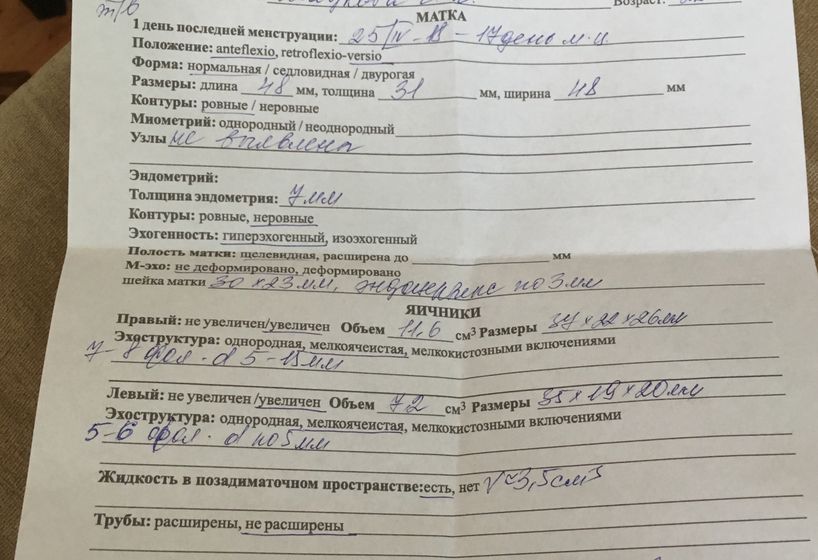 т/в
Возраст:
МАТКА
1 день последней менструации: 25/IV-18 - 17 день м.ц.
Положение: anteflexio, retroflexio-versio
Форма: нормальная / седловидная / двурогая
Размеры: длина 48 мм, толщина 31 мм, ширина 48 мм
Контуры: ровные / неровные
Миометрий: однородный / неоднородный
Узлы не выявлены
Эндометрий:
Толщина эндометрия: 7 мм
Контуры: ровные, неровные
Эхогенность: гиперэхогенный, изоэхогенный
Полость матки: щелевидная, расширена до мм
М-эхо: не деформировано, деформировано
шейка матки 30 х 23 мм, эндоцервикс по 3 мм
ЯИЧНИКИ
Правый: не увеличен/увеличен Объем 11,6 см³ Размеры 37 х 22 х 26 мм
Эхоструктура: однородная, мелкоячеистая, мелкокистозными включениями
7-8 фол. d 5-15 мм
Левый: не увеличен/увеличен Объем 7,2 см³ Размеры 35 х 19 х 20 мм
Эхоструктура: однородная, мелкоячеистая, мелкокистозными включениями
5-6 фол. d по 5 мм
Жидкость в позадиматочном пространстве: есть, нет V≈3,5 см³
Трубы: расширены, не расширены